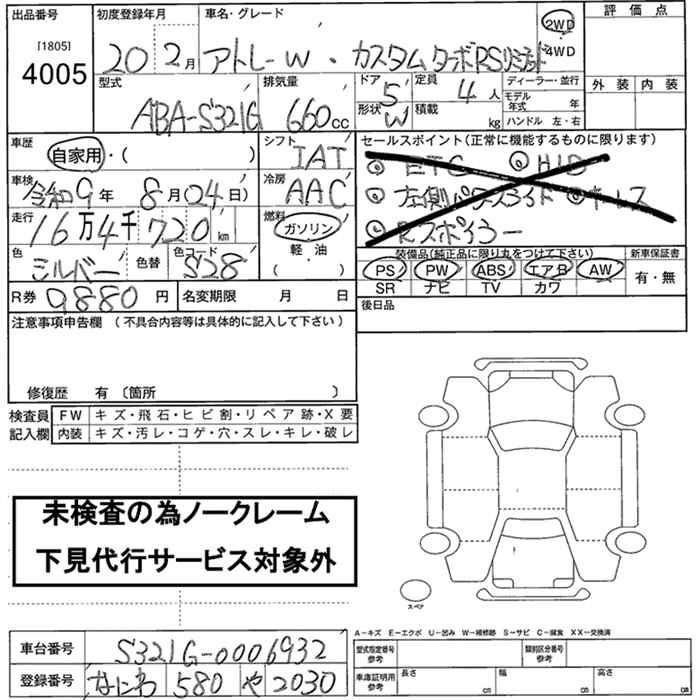 出品番号 初度登録年月 車名・グレード 評価点
[1805]
4005
20 2月 アトレーW・カスタムターボRSリミテッド 2WD 4WD
型式 排気量 ドア 定員 ディーラー・並行 外装 内装
ABA-S321G 660cc 5 4人 モデル年式 年
形状 W 積載 kg ハンドル 左・右
車歴 シフト セールスポイント(正常に機能するものに限ります)
自家用・( ) IAT ◎ETC ◎HID
車検 冷房
令和9年8月04日) AAC ◎左側パワースライド ◎キーレス
走行 燃料
16万4千720km ガソリン ◎Rスポイラー
色 色替 色コード 軽油 装備品(純正品に限り丸をつけて下さい) 新車保証書
シルバー S28 ( ) PS PW ABS エアB AW 有・無
SR ナビ TV カワ
R券 9880円 名変期限 月 日 後日品
注意事項申告欄 (不具合内容等は具体的に記入して下さい)
修復歴 有 〔箇所 〕
検査員 FW キズ・飛石・ヒビ割・リペア跡・X要
記入欄 内装 キズ・汚レ・コゲ・穴・スレ・キレ・破レ
未検査の為ノークレーム
下見代行サービス対象外
スペア
A-キズ E-エクボ U-凹み W-補修跡 S-サビ C-腐食 XX-交換済
車台番号 S321G-0006932 型式指定番号 参考 類別区分番号 参考
登録番号 なにわ 580 や 2030 車庫証明用 参考 長さ cm 幅 cm 高さ cm